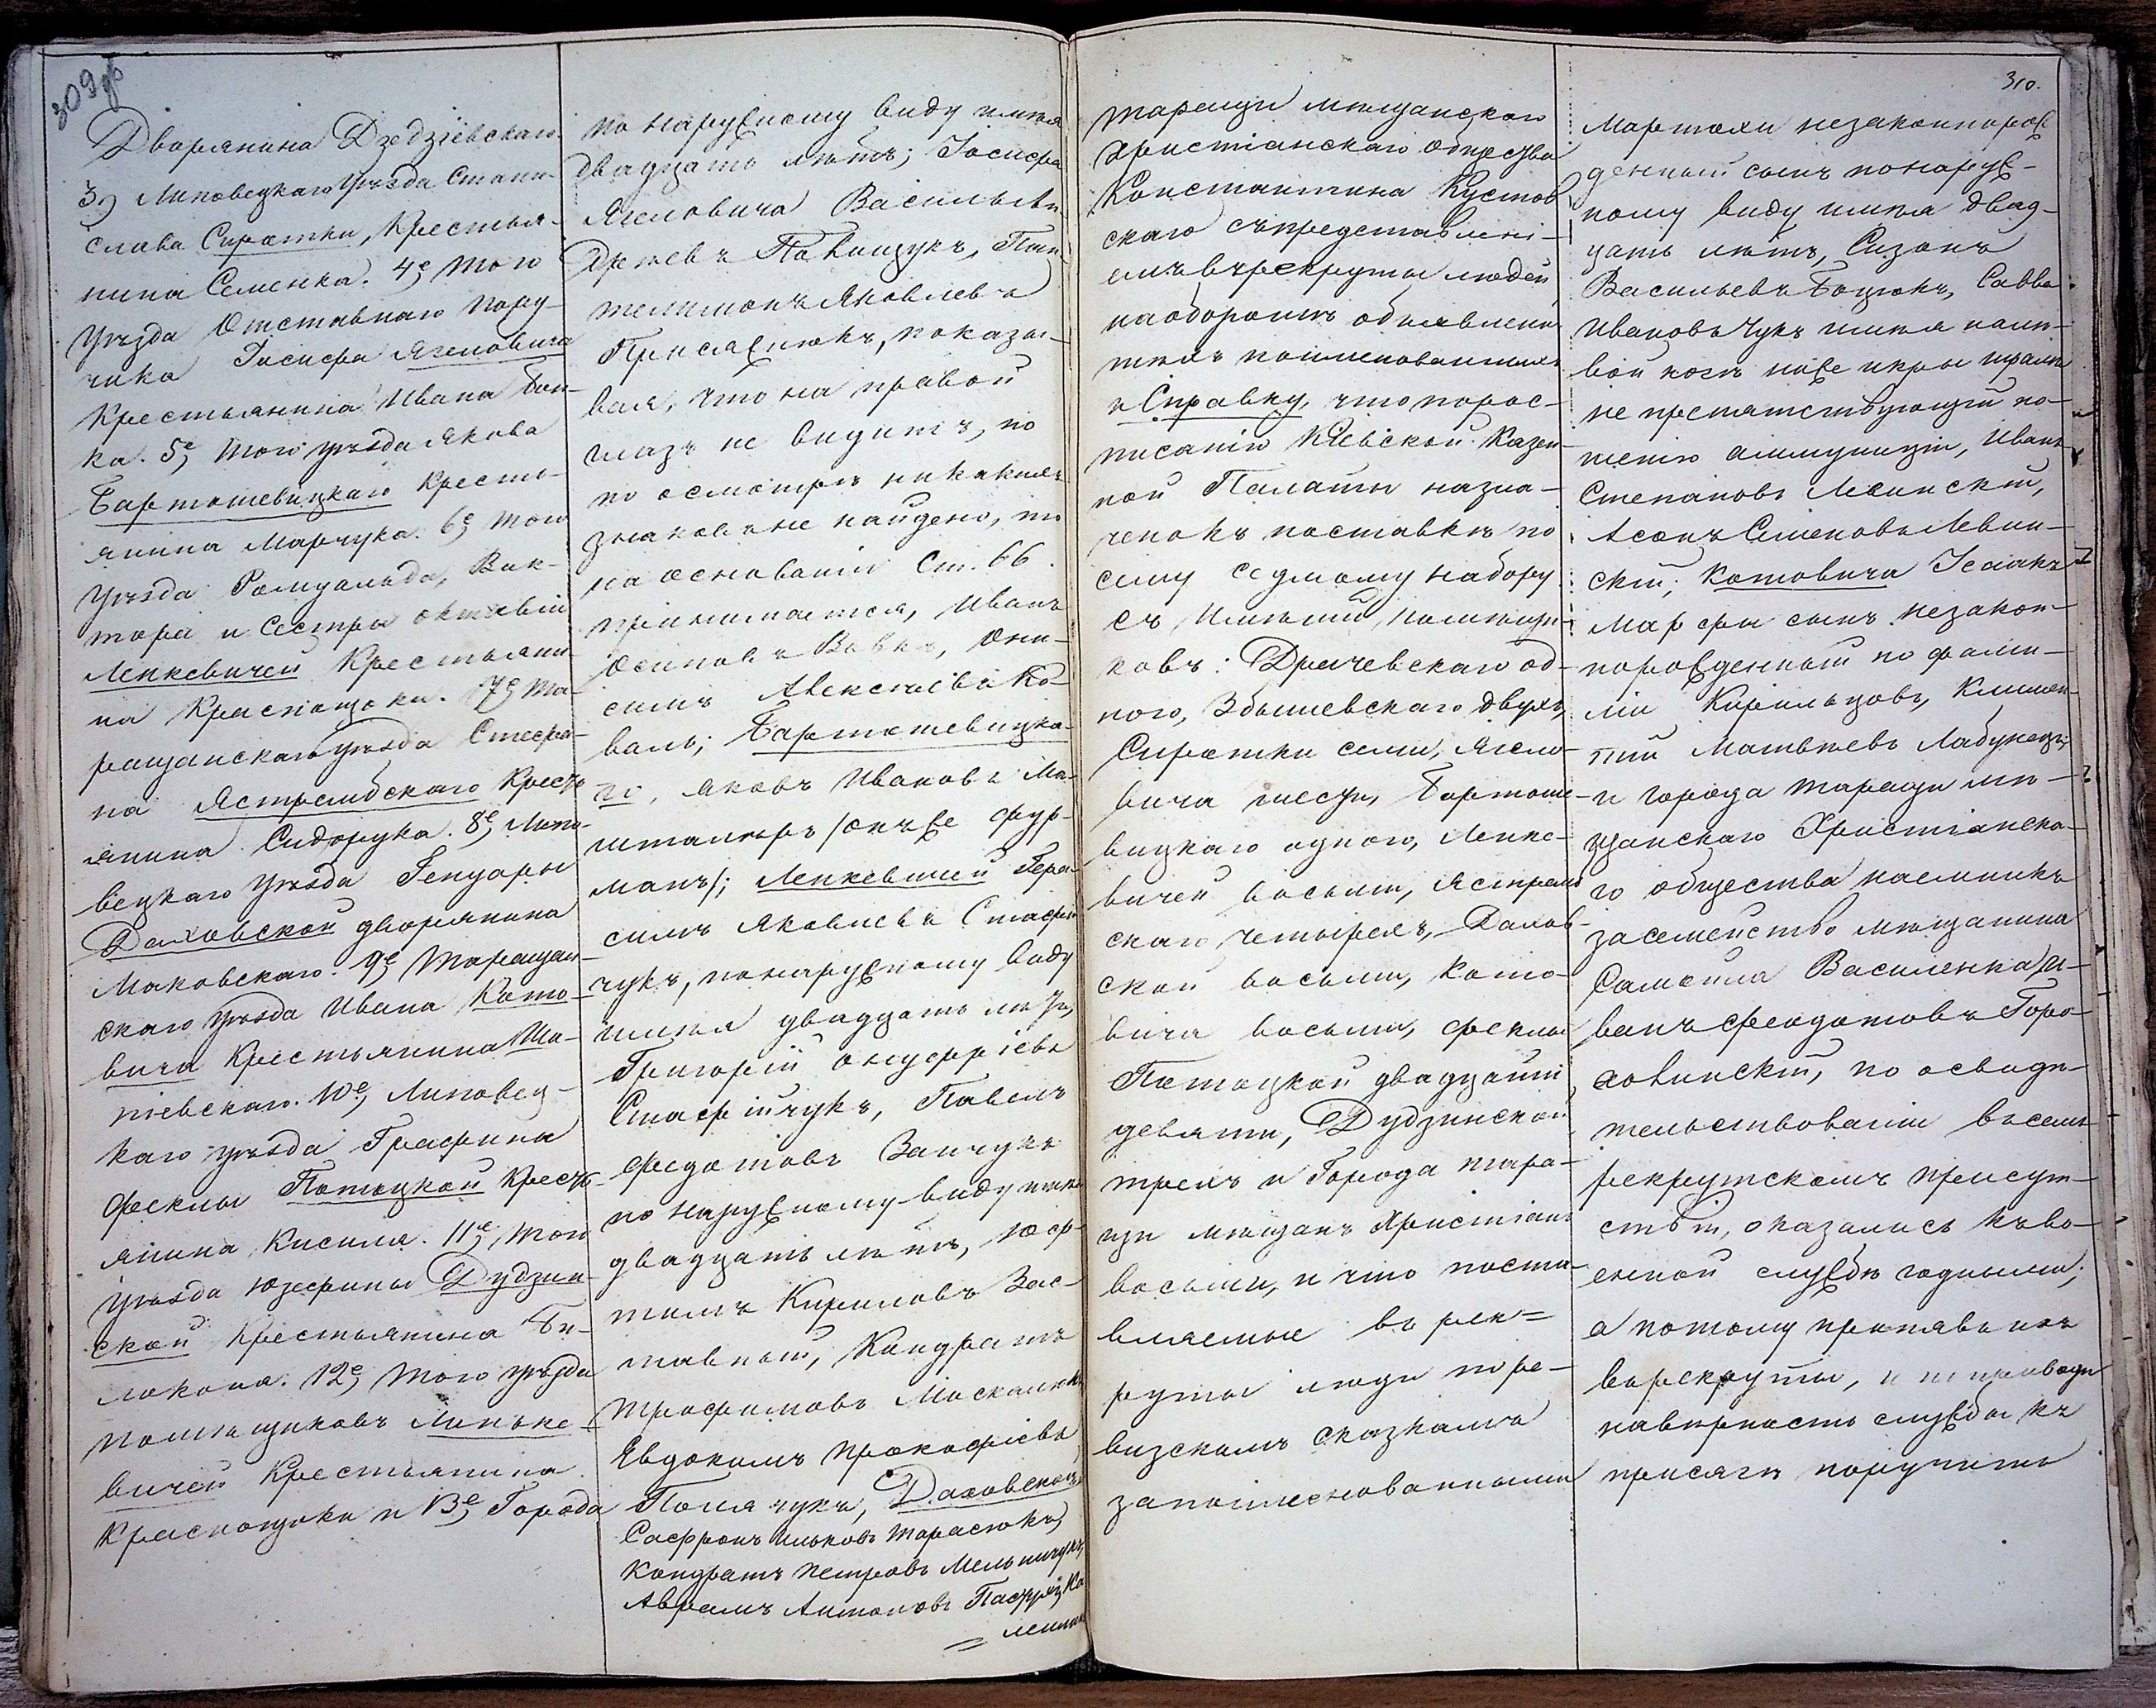 309 об
Дворянина Дзедзіевскаго.
3е, Липовецкаго уѣзда Стани-
слава Сиротки, Крестья-
нина Семенка. 4е, того
уѣзда Отставнаго пору-
чика Іосифа Ягеловича
Крестьянина Ивана Бон-
ка. 5е, того уѣзда Якова
Бартошевицкаго кресть-
янина Марчука. 6е, того
уѣзда Ромуальда, Вик-
тора и Сестры Октавіи
Лепкевичей Крестьяни-
на Краснощоки. 7е, Та-
ращанскаго уѣзда Стефа-
на Ястрембскаго Кресть-
янина Сидорука. 8е, Липо-
вецкаго уѣзда Генуары
Даховской дворянина
Маковскаго. 9е, Таращан-
скаго уѣзда Ивана Кото-
вича Крестьянина
ніевскаго. 10е, Липовец-
каго уѣзда Графини
Феклы Потоцкой Кресть-
янина Кисиля. 11е, того
уѣзда Юзефины Дудзин-
ской Крестьянина Би-
локоня. 12е, того уѣзда
помѣщиковъ Липке-
вичей Крестьянина
Краснощоки и 13е, Города
по наружному виду имѣя
двадцать лѣтъ; Іосифа
Ягеловича Василь
Артемъ Повищукъ, Пан-
телимонъ Яковлевъ
показы-
вая, что на правой
глазъ не видитъ, но
по осмотрѣ никакихъ
знаковъ не найдено, то
на основаніи Ст. 66.
принимается, Иванъ
Осиповъ Вовкъ, Они-
симъ Алексѣевъ Ко-
валь; Бартошевицка-
го, Яковъ Ивановъ Ма-
штальръ /онъ же фур-
манъ/; Лепкевичей Гера-
симъ Яковлевъ Стафій-
чукъ, по наружному виду
имѣя двадцать лѣтъ,
Григорій Онуфріевъ
Стафійчукъ, Павелъ
Федотовъ Ванчукъ
по наружному виду имѣя
двадцать лѣтъ, Юф-
тимъ Кириловъ Зас-
тавный, Кондратъ
Трофимовъ Москалюкъ,
Явдокимъ Прокофіевъ
Полячукъ, Даховской
Сафронъ Ильковъ Тарасюкъ,
Кондратъ Петровъ Мельничукъ,
Аврамъ Антоновъ
Таращи мѣщанскаго
Христіанскаго общества
Константина Кустов-
скаго съ представлені-
емъ въ рекруты людей
на оборотѣ объявлені-
тѣхъ поименованныхъ
и Справку, что по рос-
писанію Кіевской Казен-
ной Палаты назна-
чено къ поставкѣ по
сему седмому набору
съ Имѣній помѣщи-
ковъ: Дрычевскаго од-
ного, Збышевскаго двухъ,
Сиротки семи, Ягело-
вича шести, Бартоше-
вицкаго одного, Лепке-
вичей восьми, Ястремб-
скаго четырехъ, Дахов-
ской восьми, Кото-
вича восьми, Феклы
Потоцкой двадцати
девяти, Дудзинской
трехъ и Города Тара-
щи мѣщанъ Христіанъ
восьми, и что поста-
вляемые въ рек=
руты люди по ре-
визскимъ сказкамъ
запоименованными
310.
Мартохи незаконнорож-
денный сынъ по наруж-
ному виду имѣя двад-
цать лѣтъ, Сизонъ
Васильевъ Боцюкъ, Савва
Ивановъ Чукъ имѣя на лѣ-
вой ногѣ ниже икры шрамъ
не препятствующій но-
шенію аммуниціи, Иванъ
Степановъ Левинскій,
Асонъ Семеновъ Левин-
скій; Котовича Исаакъ
Марфы сынъ незакон-
норожденный по фами-
ліи Кирильцовъ, Климен-
тій Матвѣевъ Лабунецъ,
и города Таращи мѣ-
щанскаго Христіанска-
го общества наемникъ
за семейство мѣщанина
Самойла Василенка, И-
ванъ Феодотовъ Горо-
ховинскій, по освидѣ-
тельствованіи въ семъ
рекрутскомъ присут-
ствіи, оказались къ во-
енной службѣ годными;
а потому принявъ ихъ
въ рекруты, и приводи
на вѣрность службы къ
присягѣ поручить